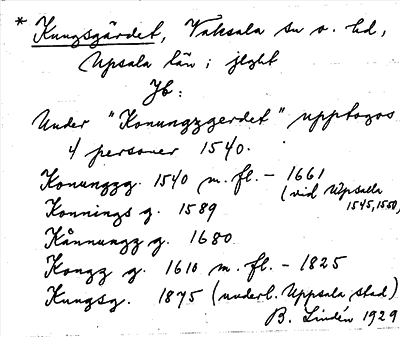 * Kungsgärdet, Vaksala sn o. hd,
Upsala län; jlght
Jb:
Under "Konungzgerdet" upptagas
4 personer 1540.
Konungzg. 1540 m. fl. - 1661
(vid Upsala
1545, 1550)
Konnings g. 1589
Kånnungz g. 1680
Kongz g. 1610 m. fl. - 1825
Kungsg. 1875 (underl. Uppsala stad)
B. Lindén 1929